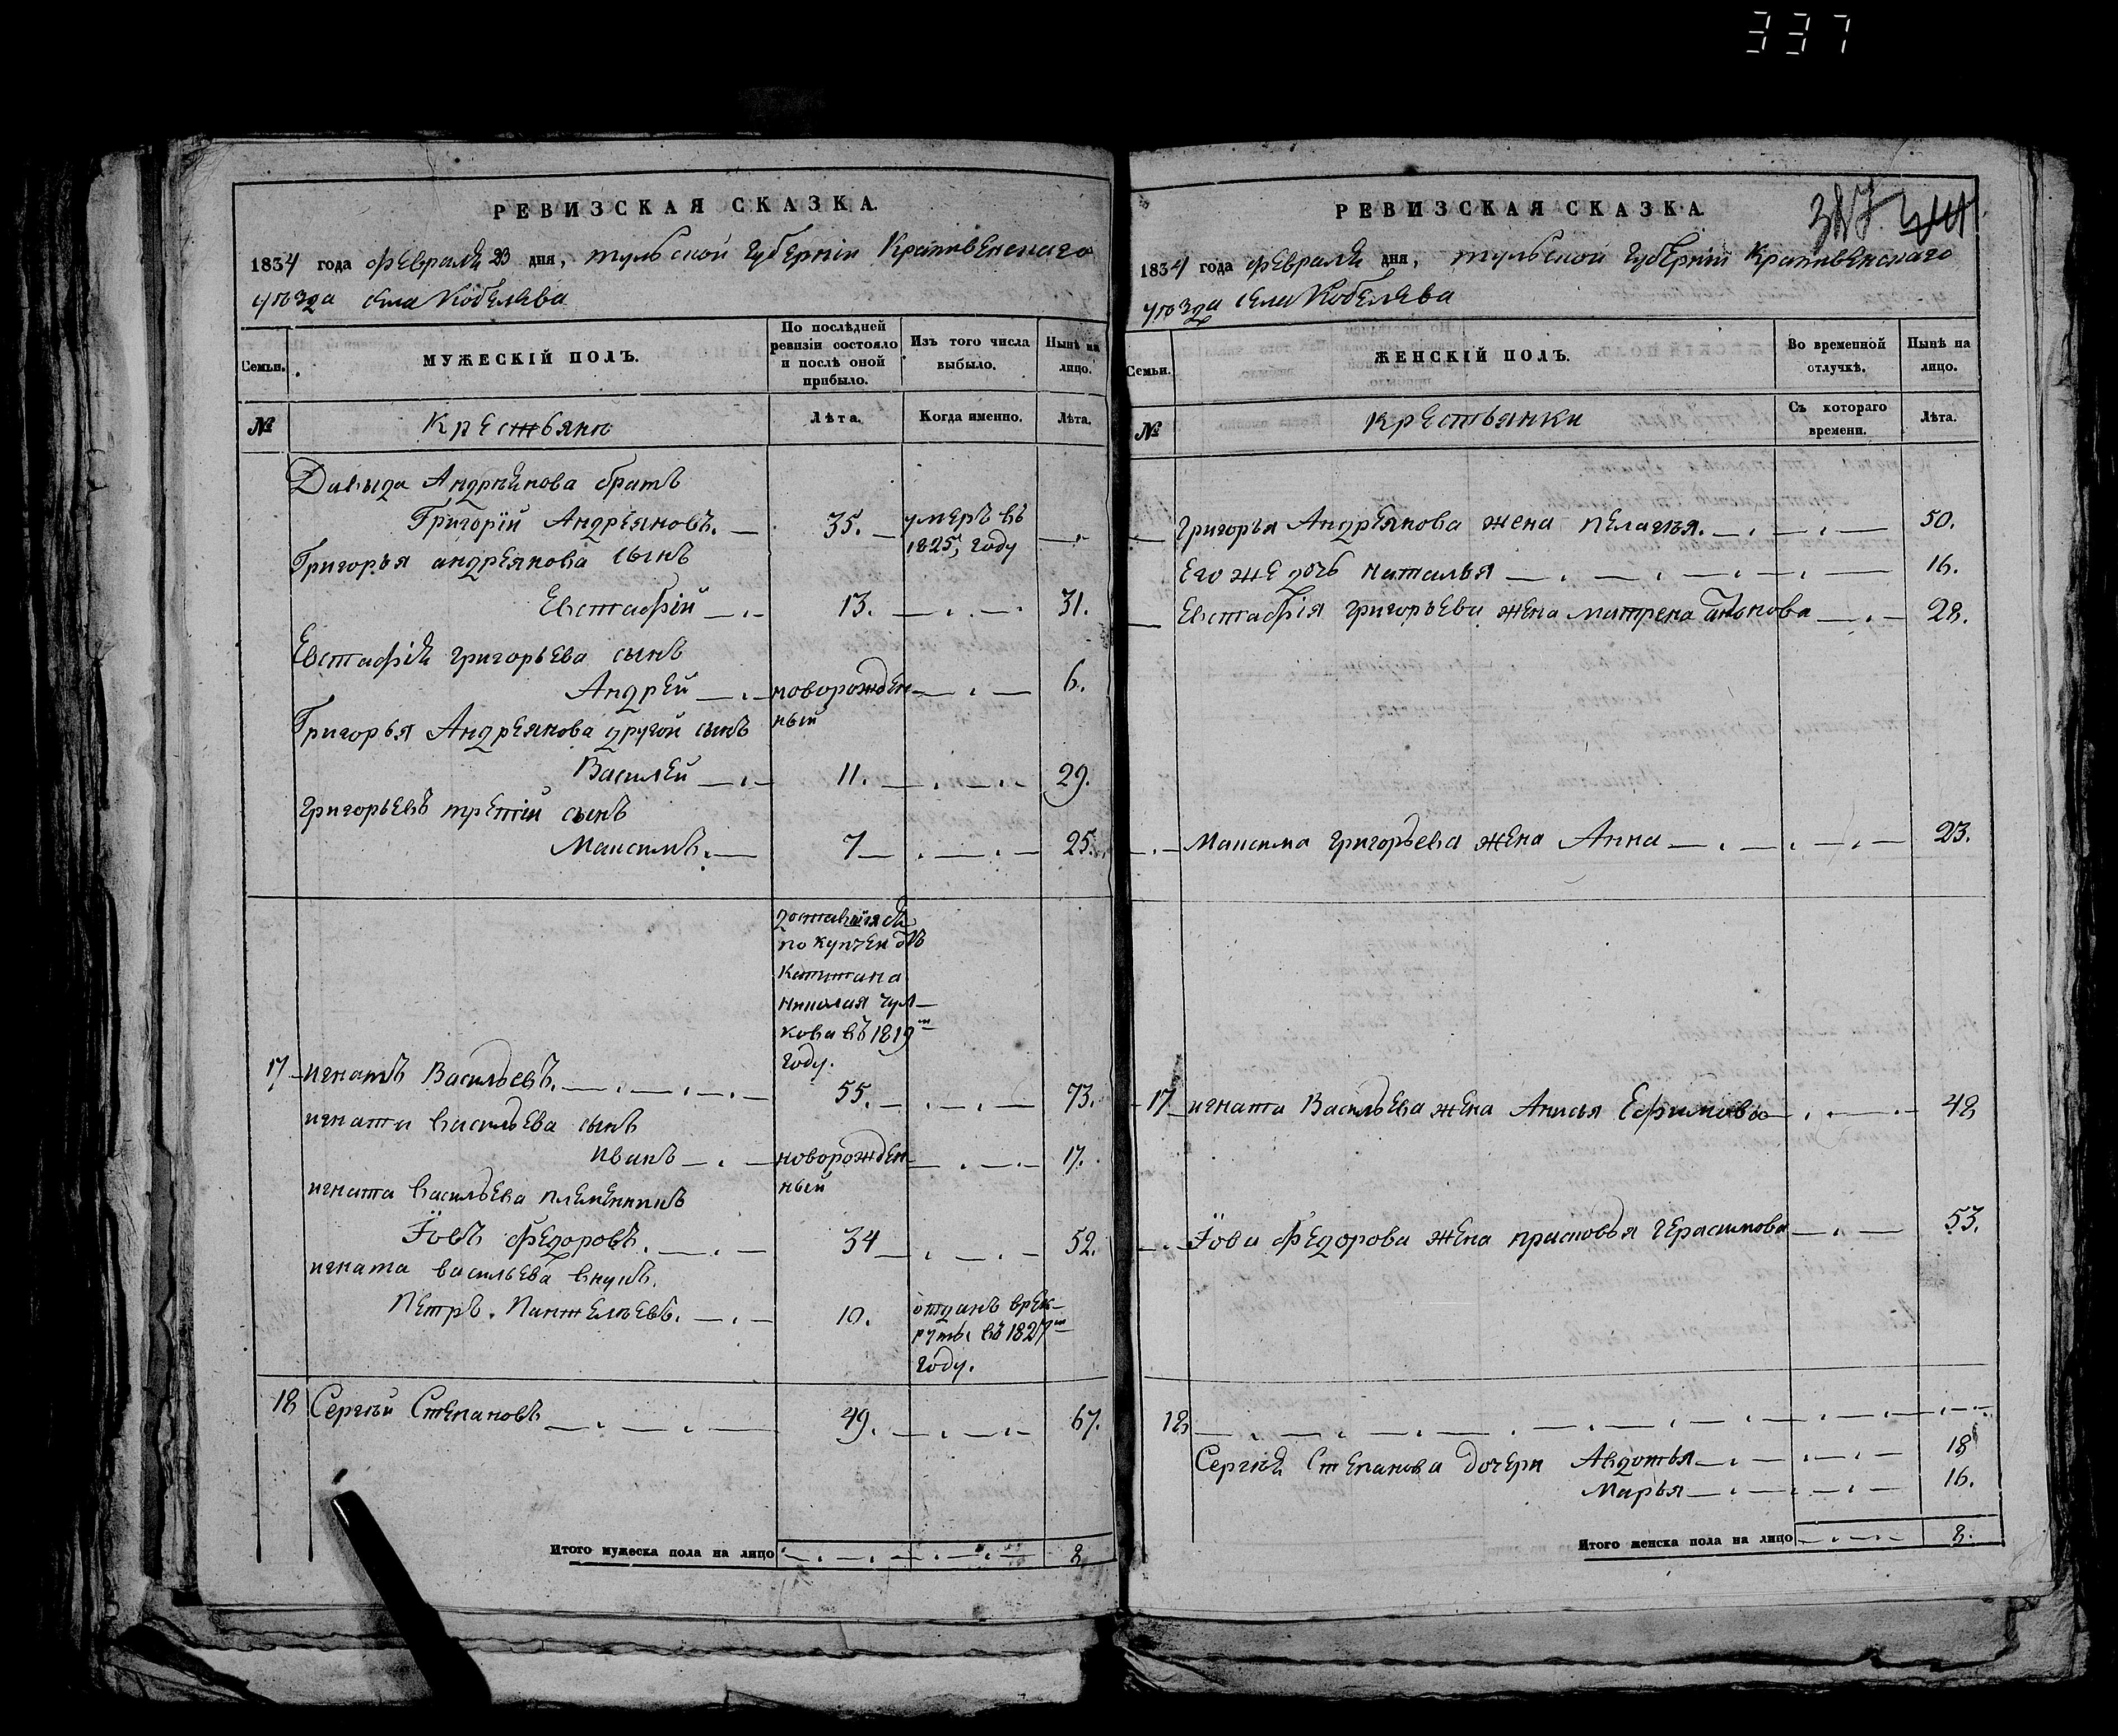 337
РЕВИЗСКАЯ СКАЗКА.
1834 года февраля 23 дня, тульской губернии Крапивенскаго
уѣзда села Кобелева
Семьи.
МУЖЕСКІЙ ПОЛЪ.
По послѣдней ревизіи состояло и послѣ оной прибыло.
Изъ того числа выбыло.
Нынѣ на лицо.
№
Крестьяне
Лѣта.
Когда именно.
Лѣта.
Давыда Андреянова братъ
Григорій Андреяновъ. 35. умеръ въ
1825, году
Григорья андреянова сынъ
Евстафій 13. 31.
Евстафія григорьева сынъ
Андрей новорожден 6.
ный
Григорья Андреянова другой сынъ
Василей 11. 29.
григорьевъ третій сынъ
Максимъ. 7 25.
доставшiяся
по купчей отъ
Капитана
николая чул
кова въ 1819м
году.
17 игнатъ Васильевъ. 55. 73.
игната васильева сынъ
иванъ новорожден 17.
ный
игната васильева племенникъ
Іовъ Федоровъ. 34 52.
игната васильева внукъ.
Петръ. Пантелѣевъ. 10. отданъ врек
руты въ 1827м
году.
18 Сергѣй Степановъ 49. 67.
Итого мужеска пола на лицо 8
РЕВИЗСКАЯ СКАЗКА.
1834 года февраля дня, тульской губерніи Крапивенскаго
уѣзда села Кобелева
Семьи.
ЖЕНСКІЙ ПОЛЪ.
Во временной отлучкѣ.
Нынѣ на лицо.
№
Крестьянки
Съ котораго времени.
Лѣта.
Григорья Андреянова жена пелагея. 50.
Его же дочь наталья 16.
Евстафія григорьева жена матрена 28.
Максима григорьева жена Анна 23.
17 игната Васильева жена Анисья Ефимова 48
Іова Федорова жена прасковья герасимова 53.
18
Сергѣя Степанова дочери Авдотья 18
Марья 16.
Итого женска пола на лицо 8.